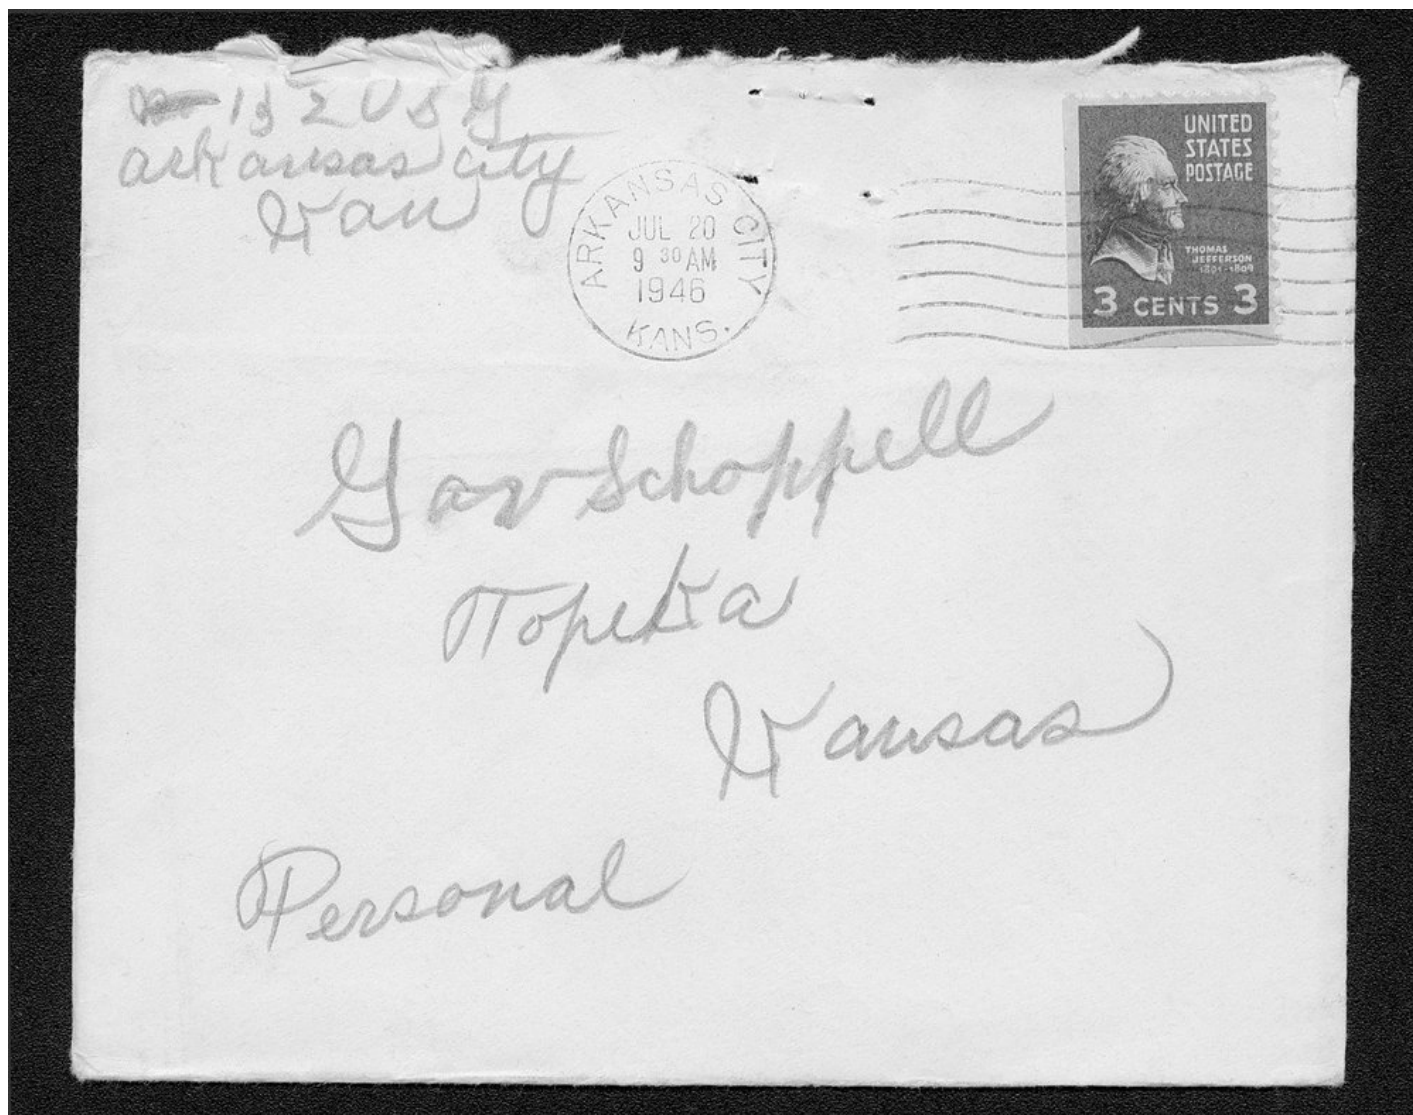 arkansas city
Kan
ARKANSAS CITY
JUL 20
9 30 AM
1946
KANS.
UNITED
STATES
POSTAGE
THOMAS
JEFFERSON
1801-1809
3 CENTS 3
Gov Schoppell
Topeka
Kansas
Personal